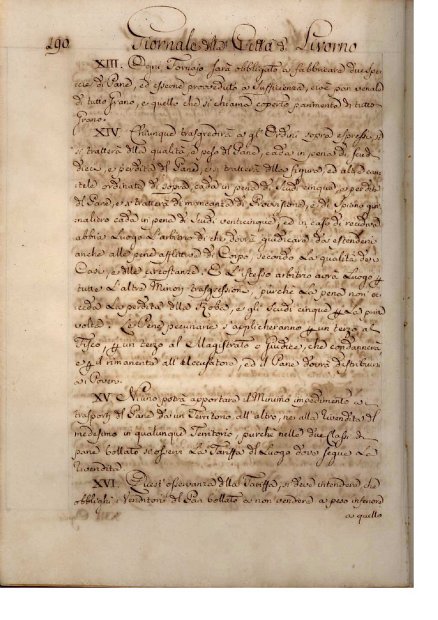 190 Giornale della Città di Livorno
XIII. Ogni Fornajo sarà obbligato a fabbricare due Spe-
cie di Pane, ed esserne proveduto a Sufficienza, cioè pan venale
di tutto grano, e quello che si chiama coperto parimente di tutto
grano.
XIV Chiunque trasgredirà a gl'Ordini sopra espressi, se
si tratterà della qualità, o peso del Pane, cada in pena di Scudi
dieci, e perdita del Pane, e se tratterà della figura, ed altre cau-
tele ordinate di sopra cada in pena di Scudi cinque, e perdita
del Pane, e se tratterà di mancanza di Provisione, e di Spiano gior-
naliero cada in pena di Scudi venticinque, ed in caso di recidiva
abbia Luogo l'arbitrio di che dovrà giudicare da estendersi
anche alle pene afflittive di Corpo, secondo La qualità de
Casi, e delle circostanze; E L'istesso arbitrio avrà Luogo
tutte L'altre Minori trasgressioni, purchè La pena non ec-
ceda La perdita della Robba, e gli Scudi cinque La prima
volta; Le Pene pecuniarie s'applicheranno un terzo al
Fisco, un terzo al Magistrato e Giudice, che condannerà
e il rimanente all'Accusatore, ed il Pane dovrà distribuirsi
ai Poveri.
XV Niuno potrà apportare il Minimo impedimento a
trasporti del Pane da un Territorio all'altro, nè alla Rivendita del
medesimo in qualunque Territorio, purchè nelle due Classi di
pane bollato si osservi La Tariffa del Luogo dove segue La
Rivendita
XVI. Quest'osservanza della Tariffa, si deve intendere che
obblighi i Venditori del Pan bollato a non vendere a peso inferiore
a quello